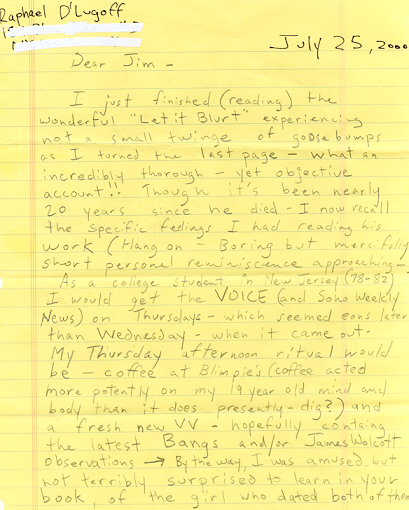 Raphael D'Lugoff
July 25, 2000
Dear Jim -
I just finished (reading) the
wonderful "Let it Blurt" experiencing
not a small twinge of goosebumps
as I turned the last page - what an
incredibly thorough - yet objective
account!! Though it's been nearly
20 years since he died - I now recall
the specific feelings I had reading his
work (Hang on - Boring but mercifully
short personal reminiscence approaching -
As a college student in New Jersey (78-82)
I would get the VOICE (and Soho Weekly
News) on Thursdays - which seemed eons later
than Wednesday - when it came out.
My Thursday afternoon ritual would
be - coffee at Blimpie's (coffee acted
more potently on my 19 year old mind and
body than it does presently - dig?) and
a fresh new VV - hopefully containg
the latest Bangs and/or James Wolcott
observations → By the way, I was amused, but
not terribly surprised to learn in your
book, of the girl who dated both of them